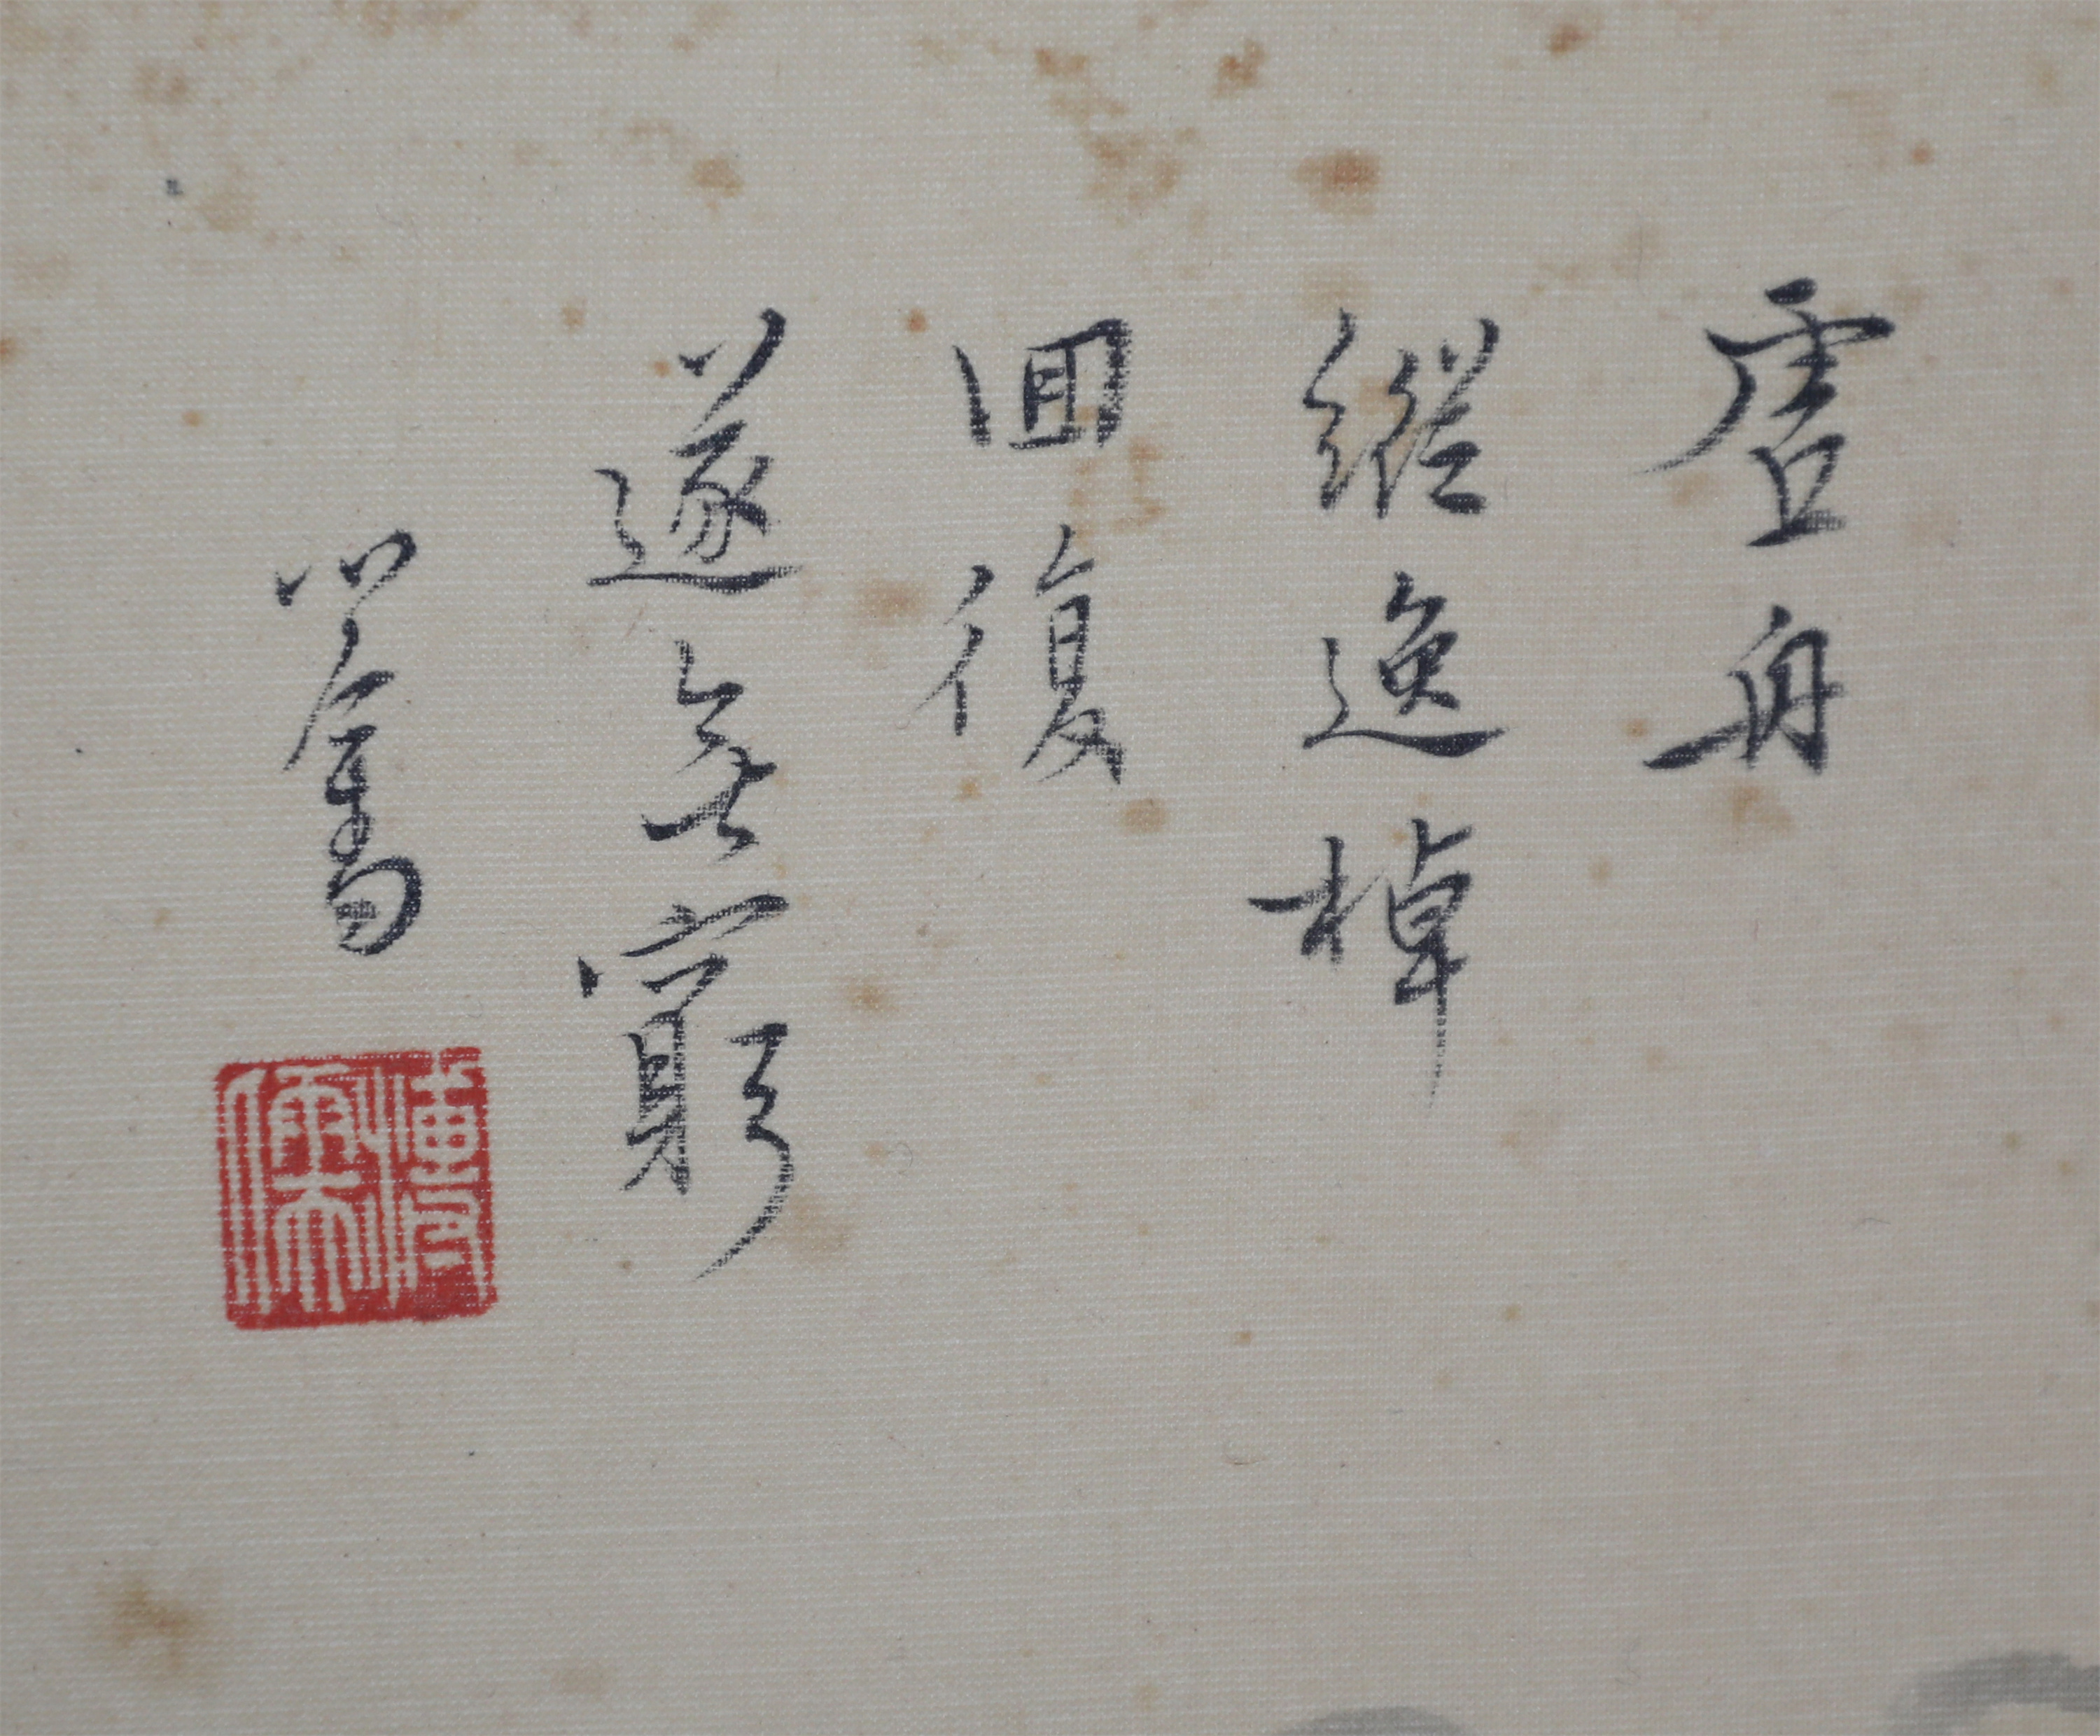 虛舟
縱逸棹
回復
遂無窮
心畬
溥儒